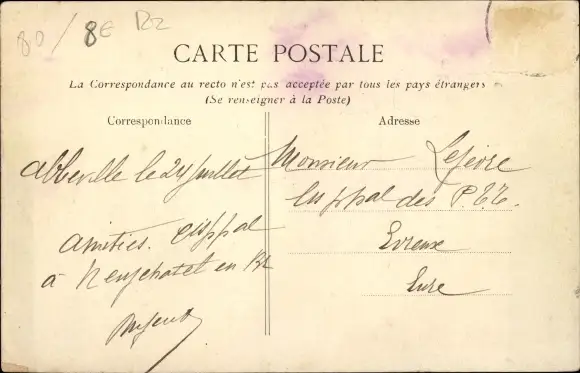 80 / 8E Bz
CARTE POSTALE
La Correspondance au recto n'est pas acceptée par tous les pays étrangers
(Se renseigner à la Poste)
Correspondance
Adresse
Abbeville le 24 Juillet
Amitiés.
à Neufchatel en
Monsieur Lefevre
des P.T.T.
Evreux
Eure